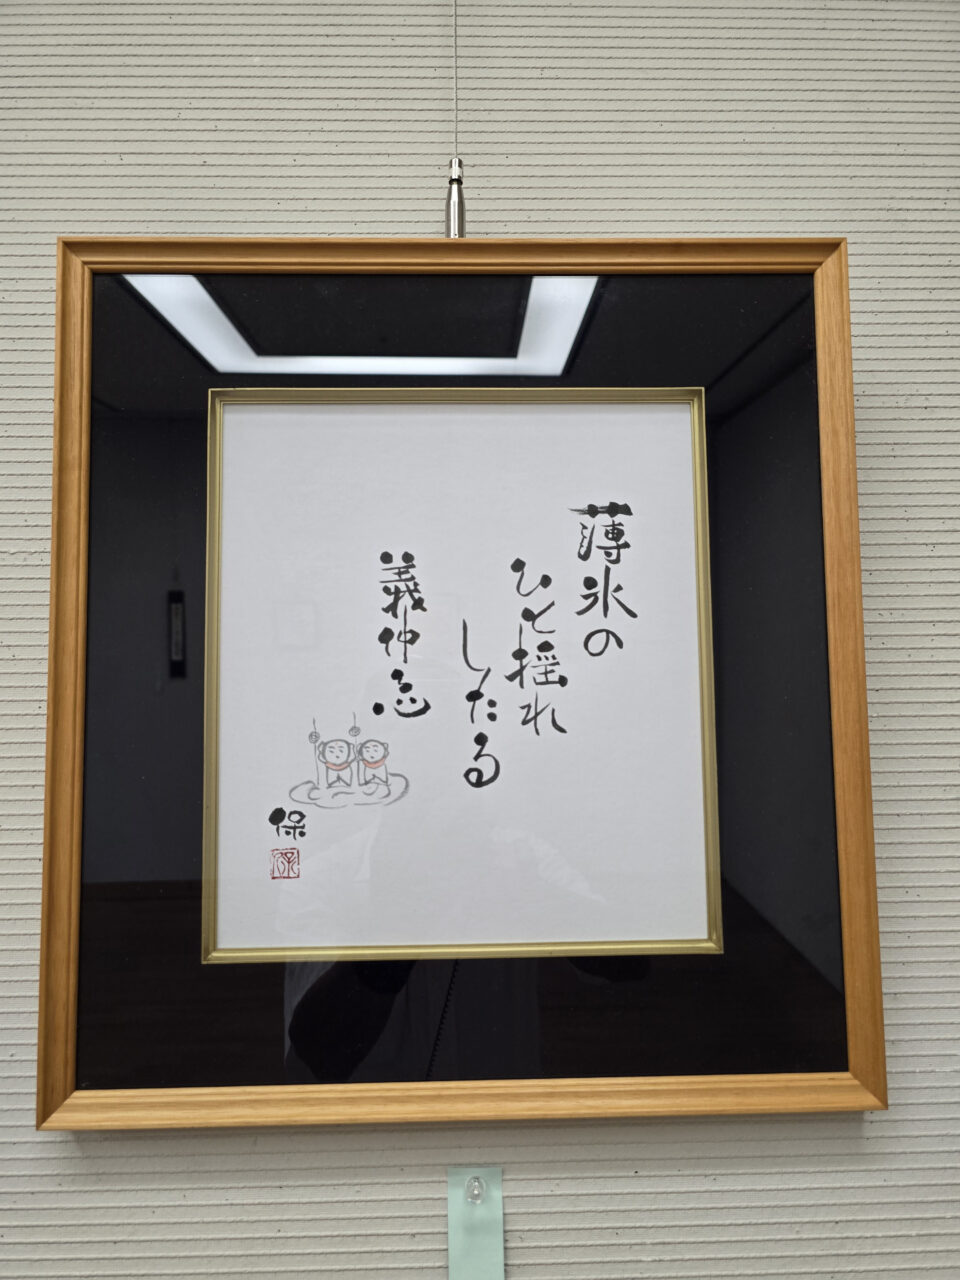 薄氷の
ひと揺れ
したる
義仲忌
保